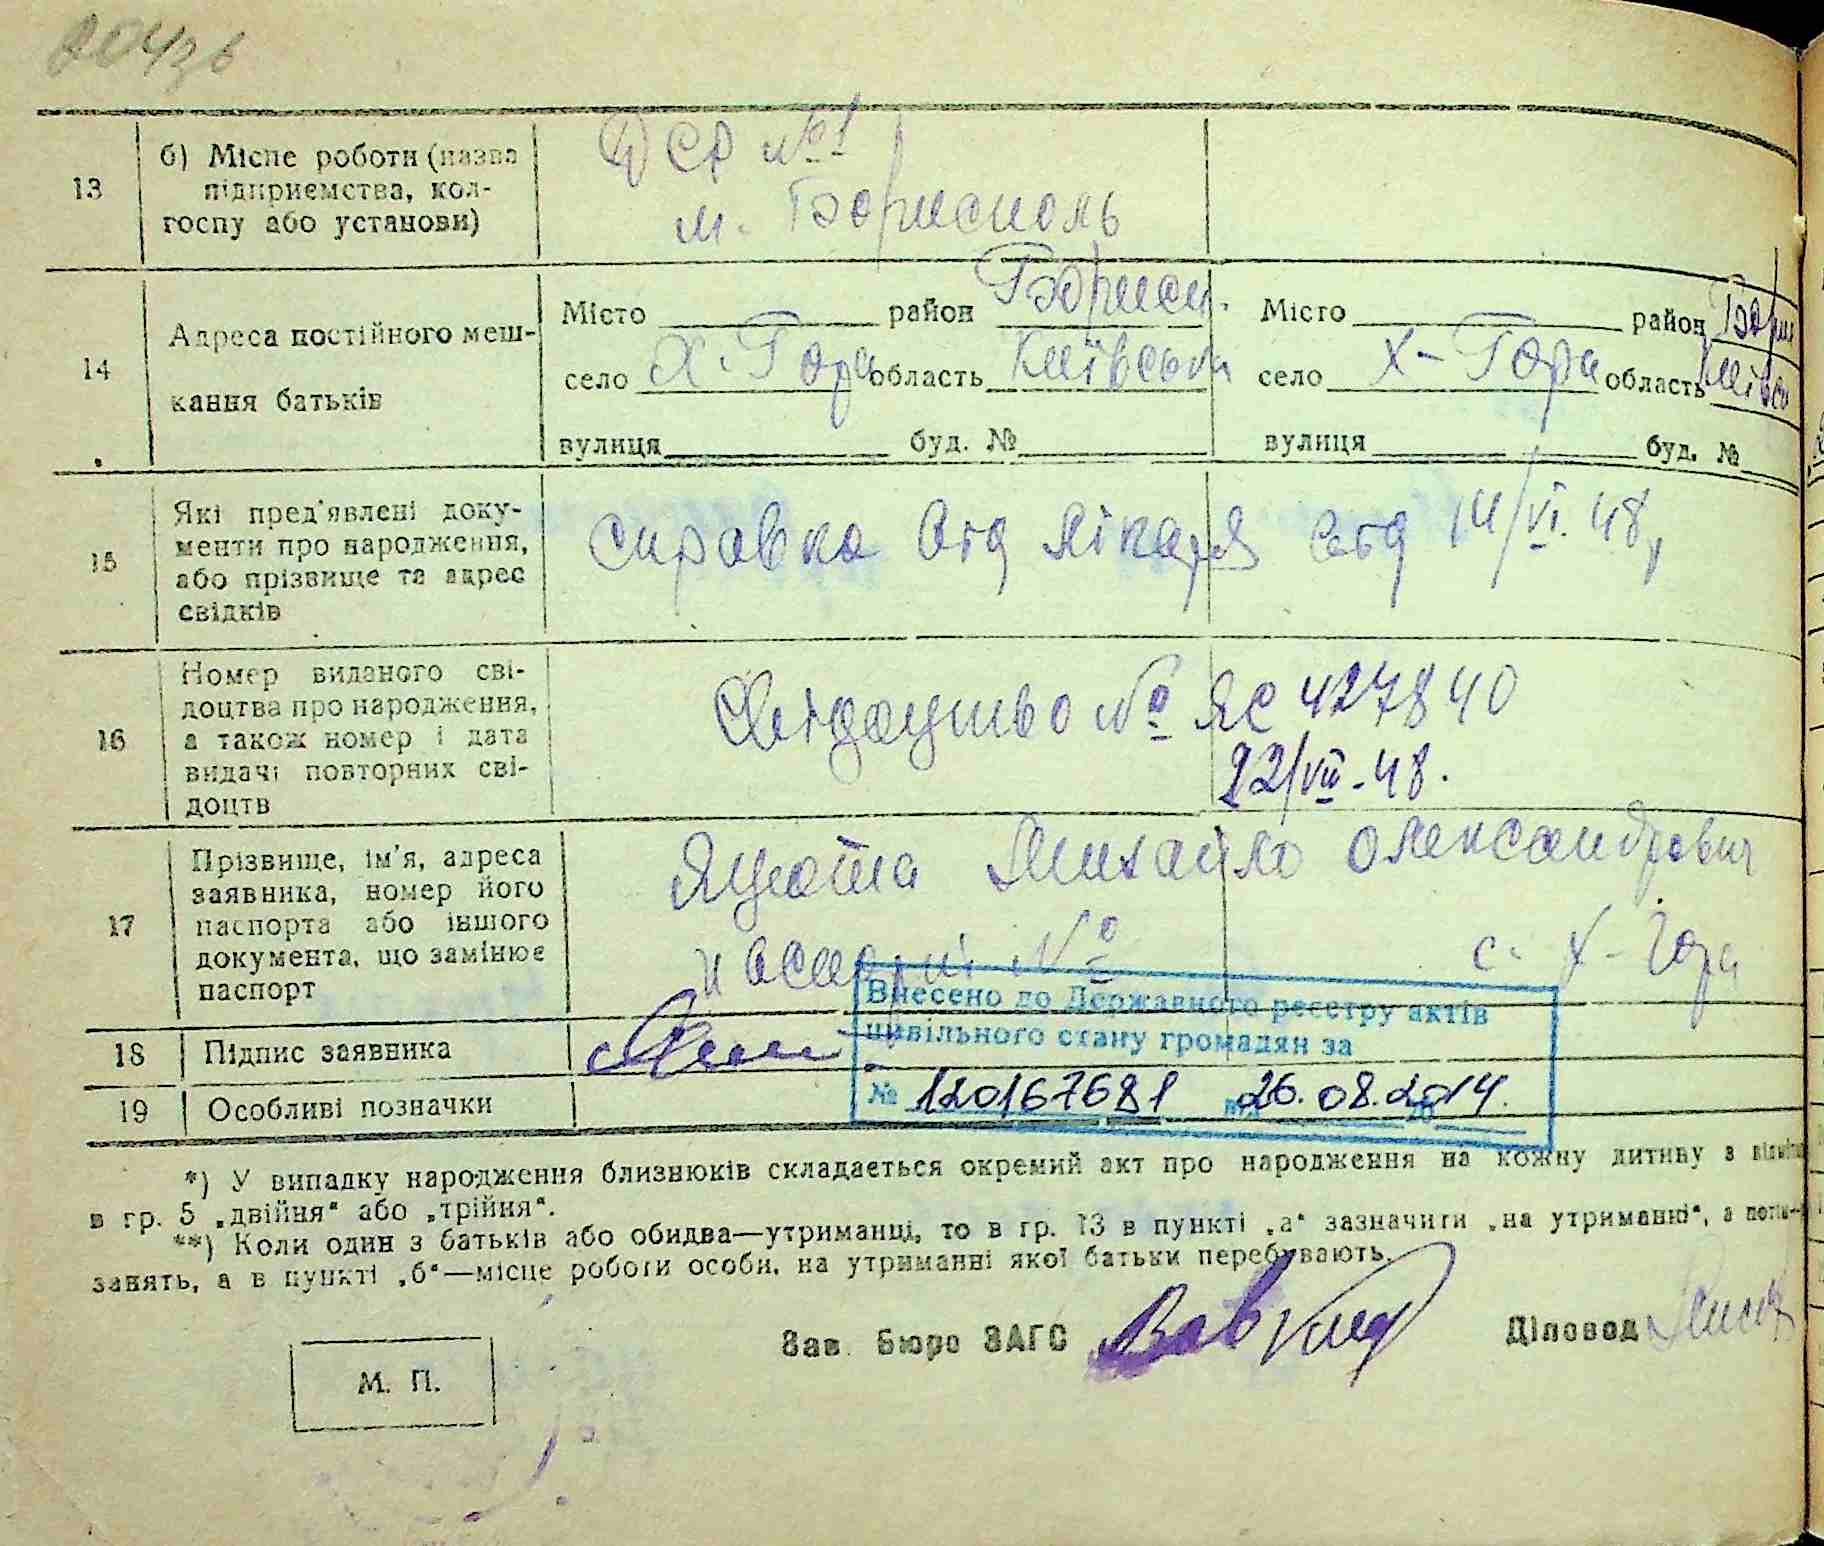 204зв
13 б) Місце роботи (назва
підприємства, кол-
госпу або установи)
ДСР №1
м. Бориспіль
14 Адреса постійного меш-
кання батьків
Місто район Борисп.
село Х. Гора область Київська
вулиця буд. №
Місто район Бори
село Х-Гора область Київсь
вулиця буд. №
15 Які пред'явлені доку-
менти про народження,
або прізвище та адрес
свідків
справка від лікаря від 14/VI. 48,
16 Номер виданого сві-
доцтва про народження,
а також номер і дата
видачі повторних сві-
доцтв
Свідоцтво № ЯС 427840
22/VII-48.
17 Прізвище, ім'я, адреса
заявника, номер його
паспорта або іншого
документа, що замінює
паспорт
Михайло Олександрович
паспорт № с. Х-Гора
18 Підпис заявника
19 Особливі позначки
Внесено до Державного реєстру актів
цивільного стану громадян за
№ 120167681 від 26.08.2014.
*) У випадку народження близнюків складається окремий акт про народження на кожну дитину з відміт
в гр. 5 „двійня" або „трійня".
**) Коли один з батьків або обидва—утриманці, то в гр. 13 в пункті „а" зазначити „на утриманні", а
занять, а в пункті „б"—місце роботи особи, на утриманні якої батьки перебувають.
Зав. Бюро ЗАГС Діловод
М. П.